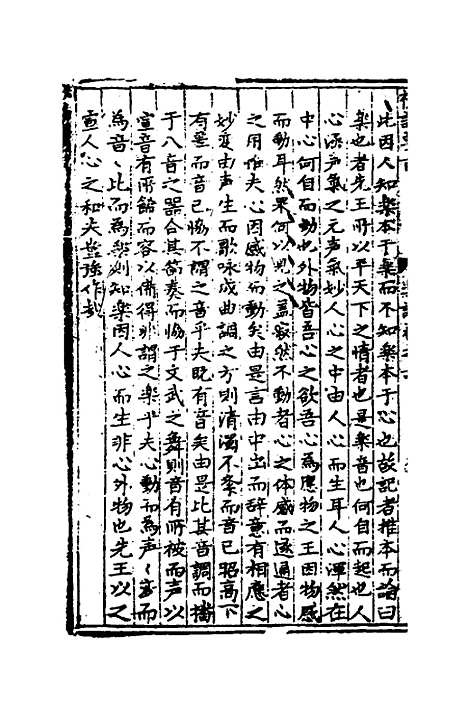 此因人知楽本于楽而不知楽本于心也故記者推本而論曰
楽也者先王所以平天下之情者也是楽音也何自而起也人
心涵声氣之元声氣妙人心之中由人心而生耳人心渾然在
中心何自而動也外物皆吾心之欲吾心為應物之王因物感
而動耳然果何以見之蓋寂然不動者心之体感而遂通者心
之用作夫心因感物而動矣由是言由中出而辞意有相應之
妙变由声生而歌咏成曲調之方則清濁不紊而音已昭高下
有差而音已惱不謂之音乎夫既有音矣由是比其音調而播
于八音之器合其節奏而惱于文武之舞則音有所被而声以
宣音有所餙而容以俻得非謂之楽乎夫心動而為声〻変而
為音〻比而為楽則知楽因人心而生非心外物也先王以之
宣人心之和夫豈強作哉